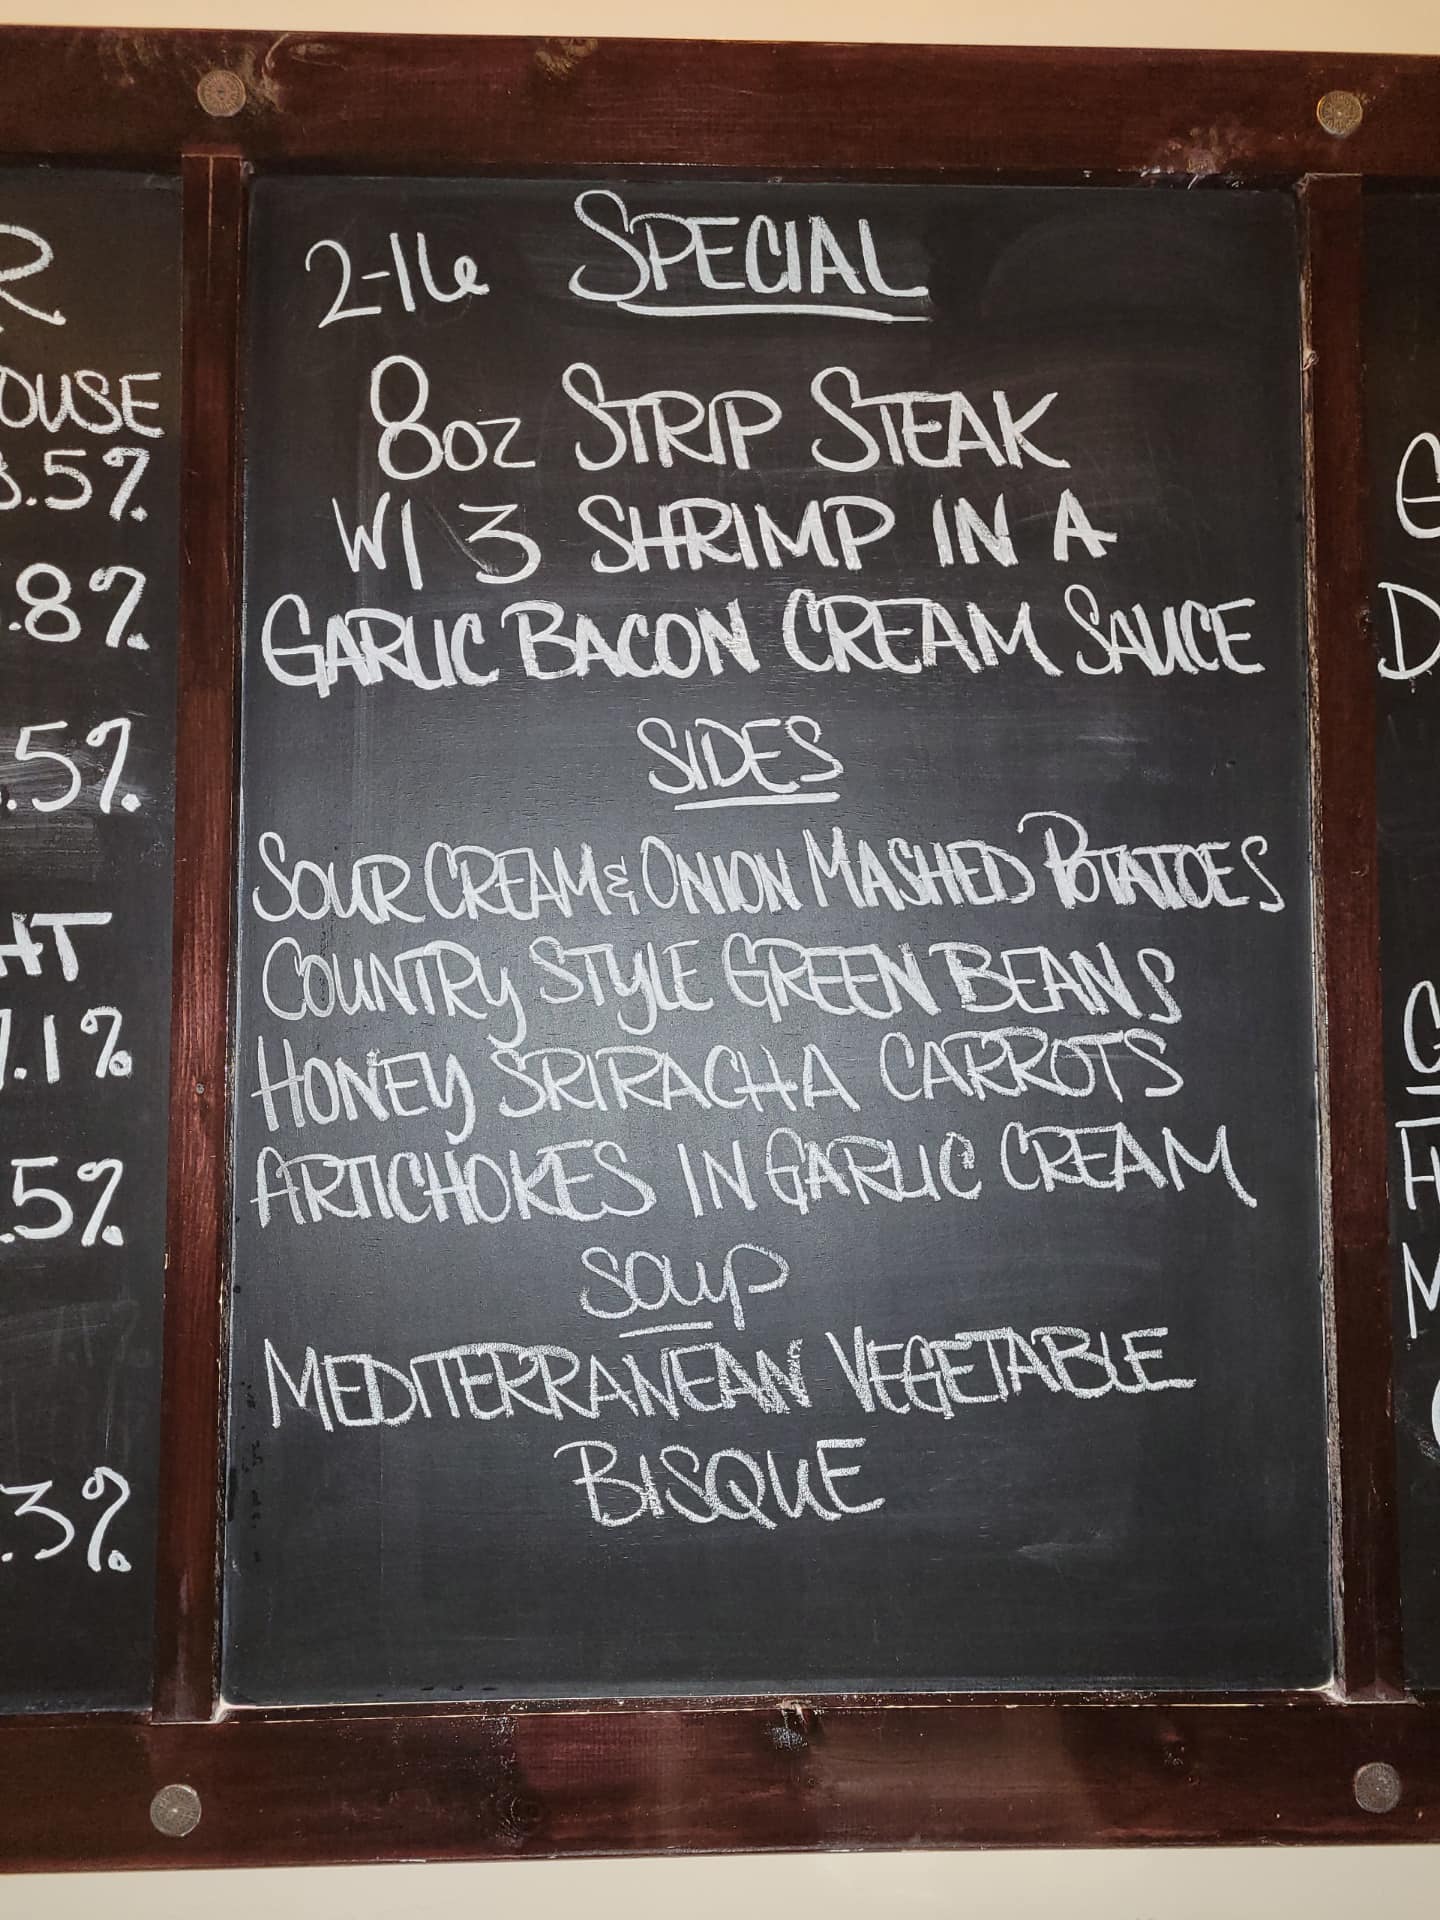 2-16 SPECIAL
8OZ STRIP STEAK
W/ 3 SHRIMP IN A
GARLIC BACON CREAM SAUCE
SIDES
SOUR CREAM & ONION MASHED POTATOES
COUNTRY STYLE GREEN BEANS
HONEY SRIRACHA CARROTS
ARTICHOKES IN GARLIC CREAM
SOUP
MEDITERRANEAN VEGETABLE
BISQUE